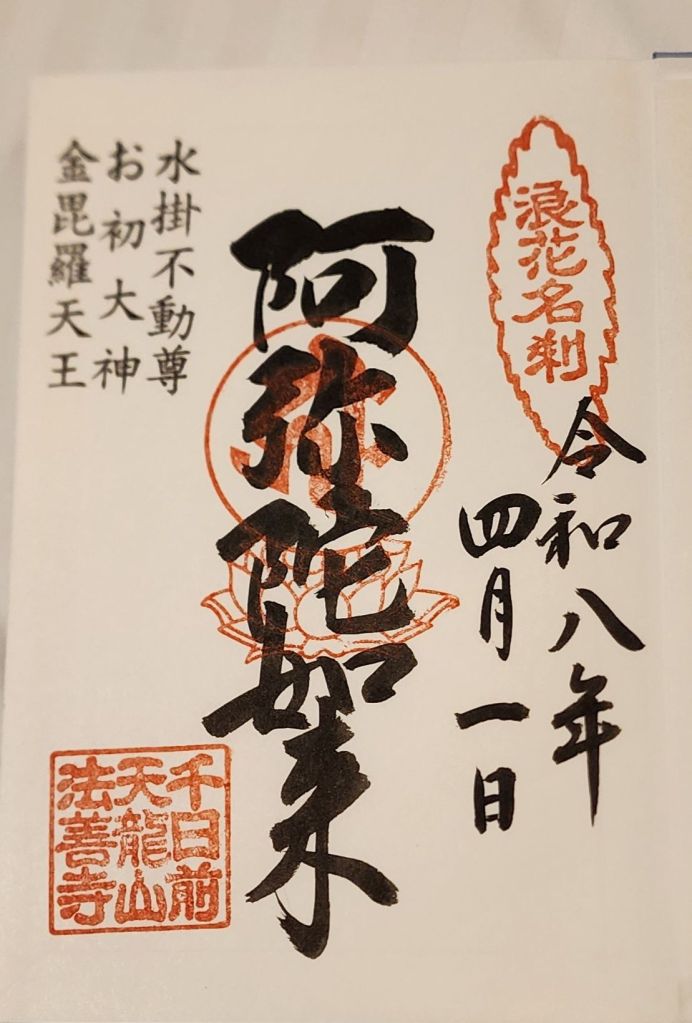 浪花名刹
令和八年
四月一日
阿弥陀如来
水掛不動尊
お初大神
金毘羅天王
千日前
天龍山
法善寺